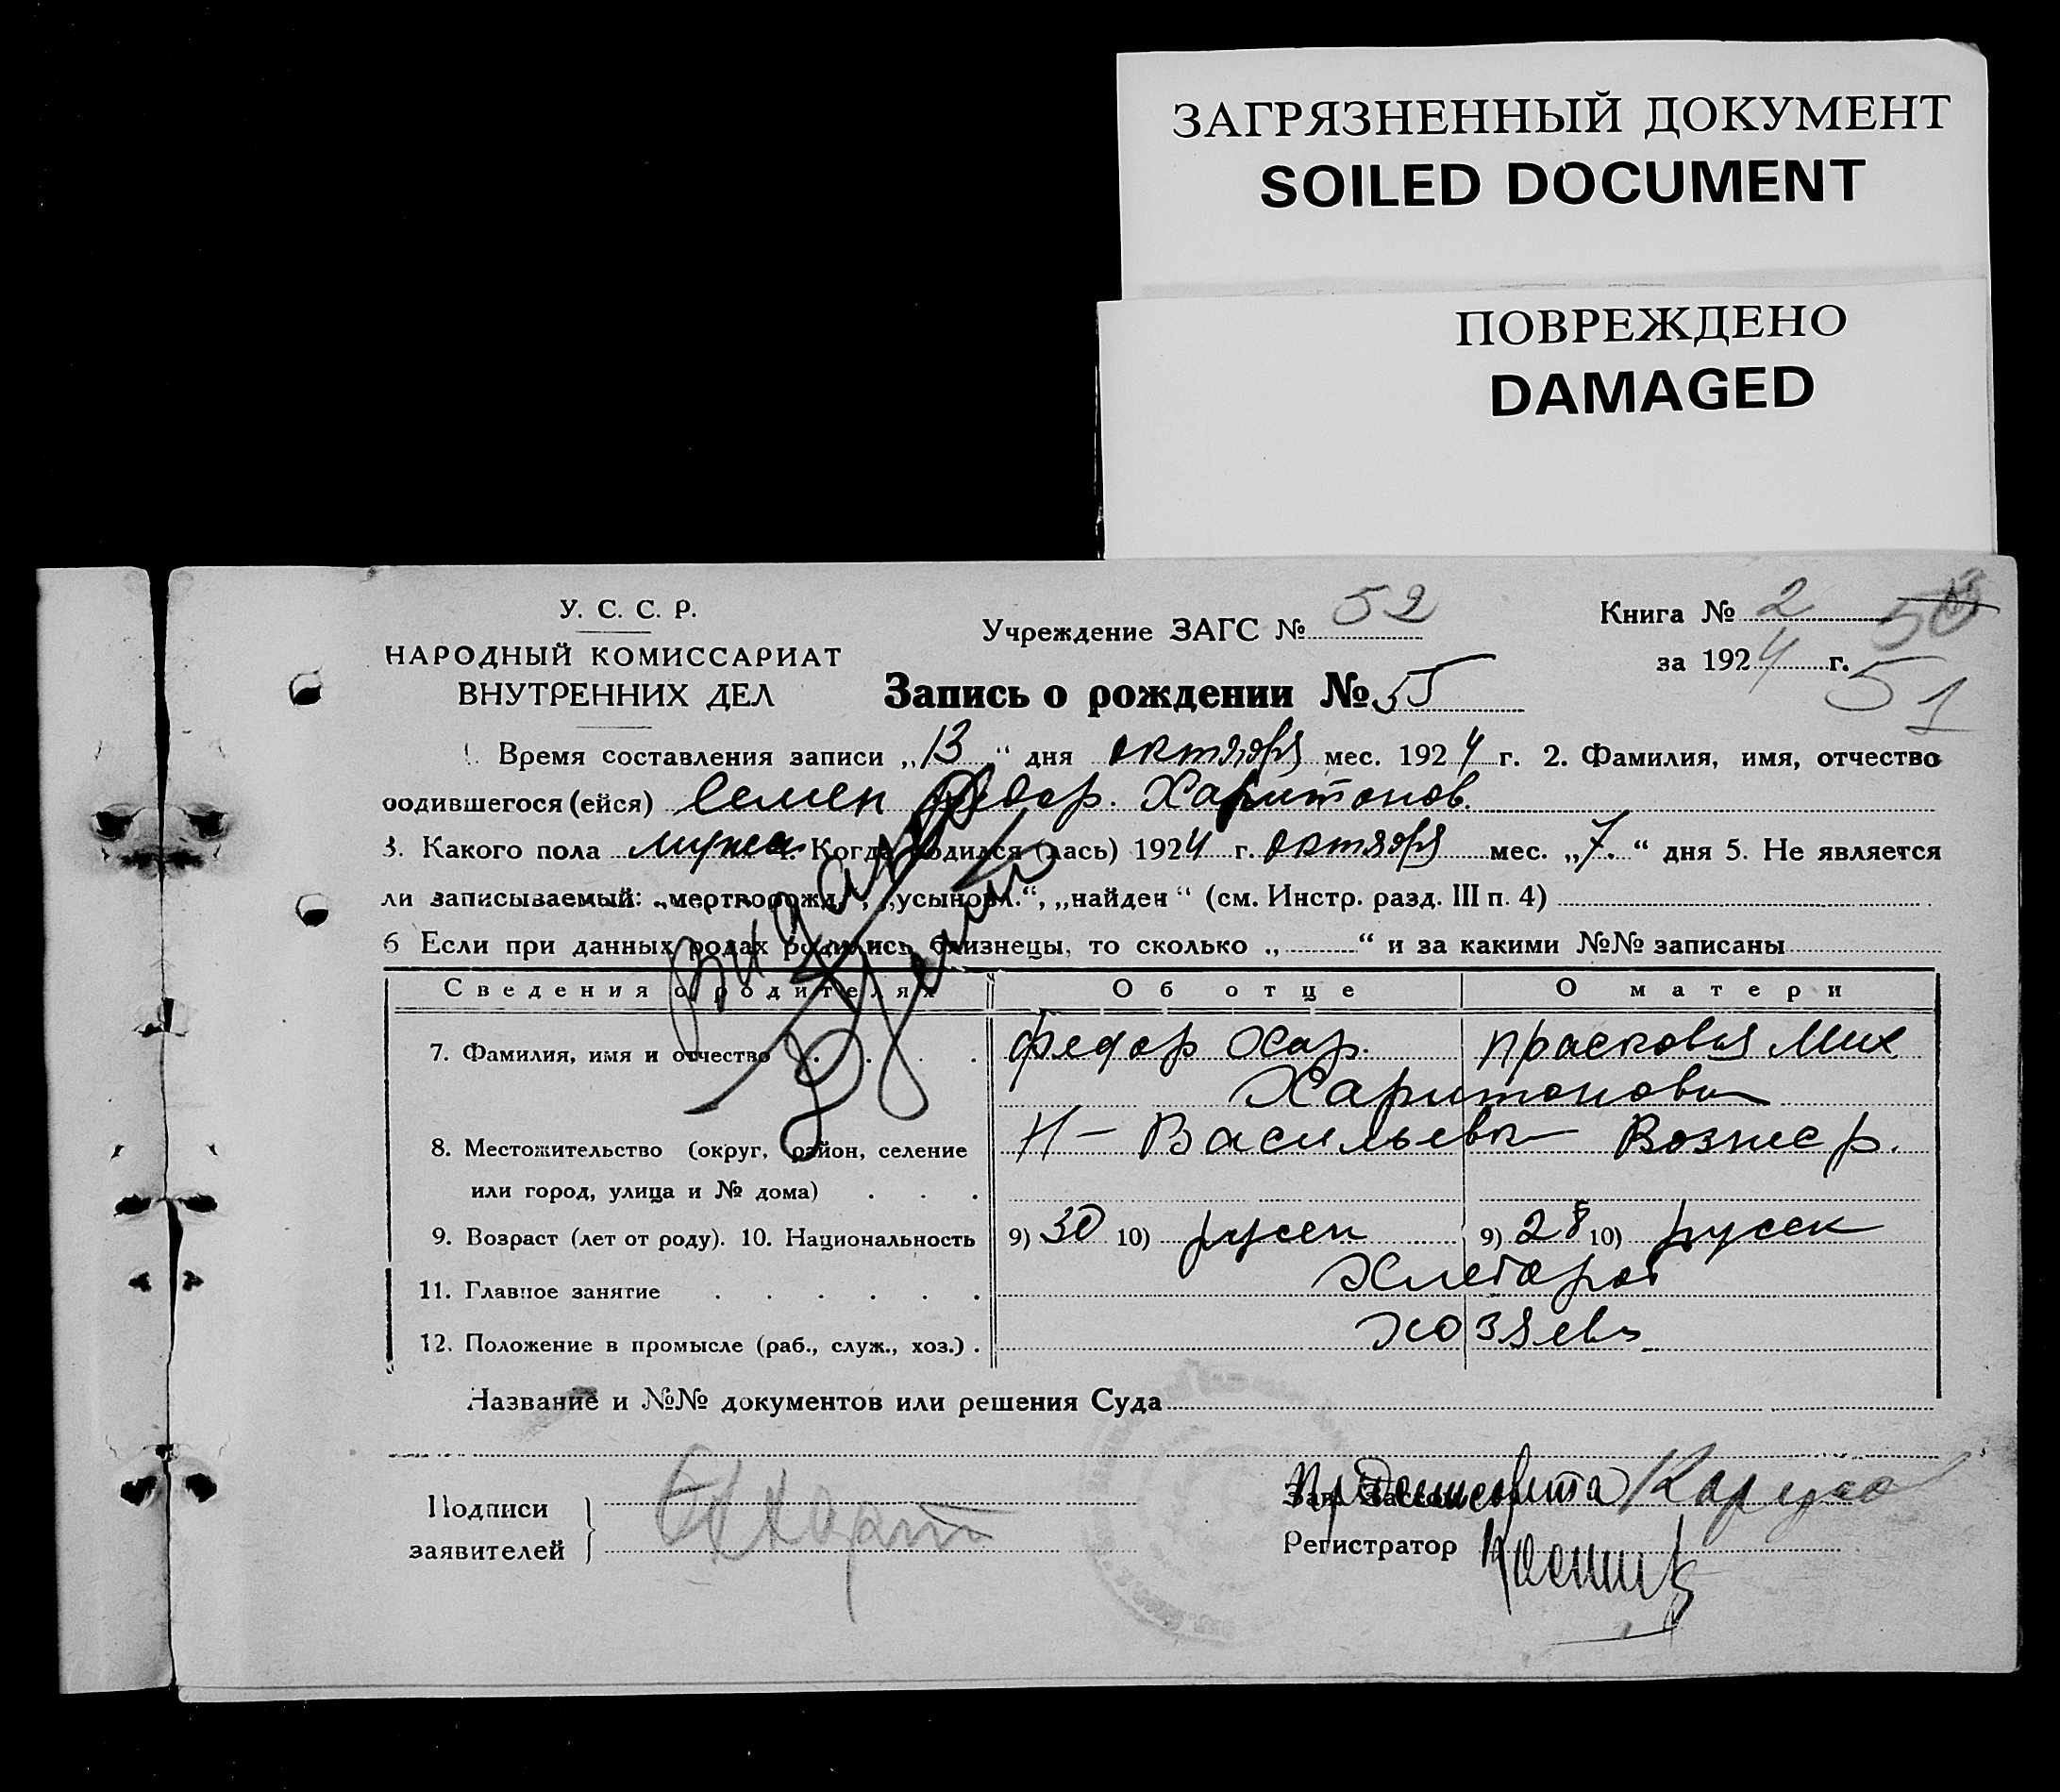 ЗАГРЯЗНЕННЫЙ ДОКУМЕНТ
SOILED DOCUMENT
ПОВРЕЖДЕНО
DAMAGED
У. С. С. Р.
НАРОДНЫЙ КОМИССАРИАТ
ВНУТРЕННИХ ДЕЛ
Учреждение ЗАГС № 52
Запись о рождении № 55
Книга № 2 50
за 1924 г.
51
1. Время составления записи „13“ дня октября мес. 1924 г. 2. Фамилия, имя, отчество
родившегося (ейся) Семен Федор. Харитонов.
3. Какого пола мужск 4. Когда родился (лась) 1924 г. октября мес. „7.“ дня 5. Не является
ли записываемый: „мертворожд.“, „усыновл.“, „найден“ (см. Инстр. разд. III п. 4)
6 Если при данных родах родились близнецы, то сколько „ “ и за какими №№ записаны
Сведения о родителях Об отце О матери
7. Фамилия, имя и отчество Федор Хар. Прасковия Мих
Харитонови
8. Местожительство (округ, район, селение Н-Васильевка Вознес р.
или город, улица и № дома)
9. Возраст (лет от роду). 10. Национальность 9) 30 10) русск 9) 28 10) русск
11. Главное занятие Хлебороб
12. Положение в промысле (раб., служ., хоз.) хозяева
Название и №№ документов или решения Суда
Подписи
заявителей
Регистратор